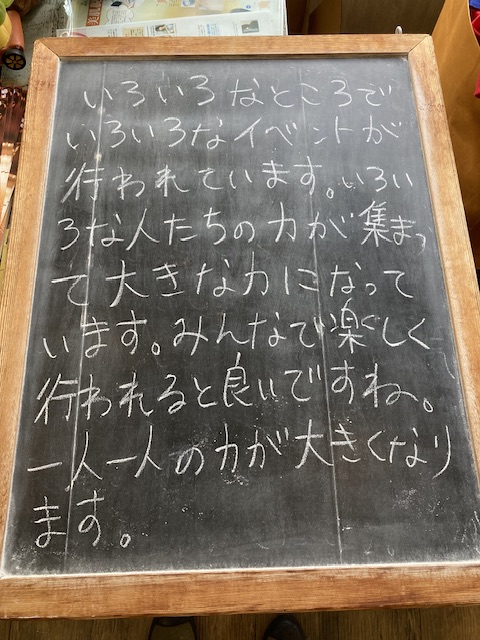 いろいろなところで
いろいろなイベントが
行われています。いろい
ろな人たちの力が集まっ
て大きな力になって
います。みんなで楽しく
行われると良いですね。
一人一人の力が大きくなり
ます。